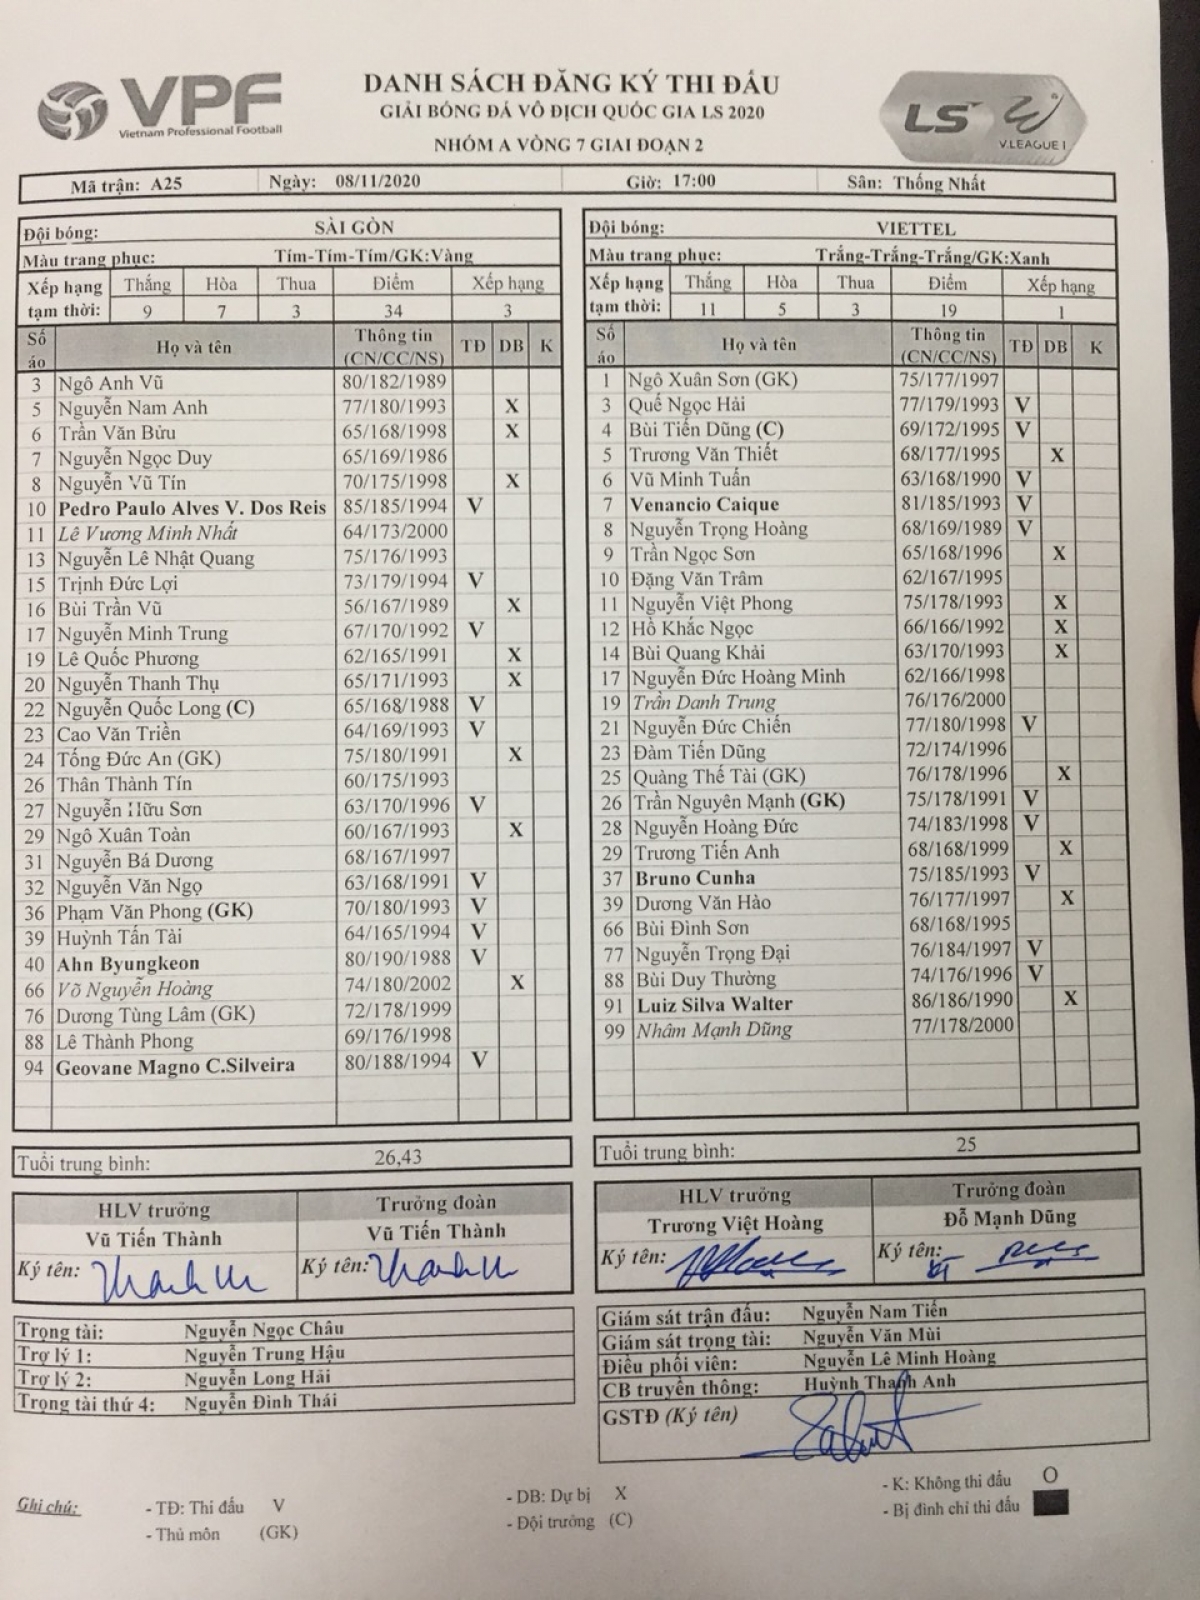 VPF
Vietnam Professional Football
DANH SÁCH ĐĂNG KÝ THI ĐẤU
GIẢI BÓNG ĐÁ VÔ ĐỊCH QUỐC GIA LS 2020
NHÓM A VÒNG 7 GIAI ĐOẠN 2
LS V.LEAGUE 1
Mã trận: A25 Ngày: 08/11/2020 Giờ: 17:00 Sân: Thống Nhất
Đội bóng: SÀI GÒN
Màu trang phục: Tím-Tím-Tím/GK:Vàng
Xếp hạng Thắng Hòa Thua Điểm Xếp hạng
tạm thời: 9 7 3 34 3
Số áo Họ và tên Thông tin (CN/CC/NS) TĐ DB K
3 Ngô Anh Vũ 80/182/1989
5 Nguyễn Nam Anh 77/180/1993 X
6 Trần Văn Bửu 65/168/1998 X
7 Nguyễn Ngọc Duy 65/169/1986
8 Nguyễn Vũ Tín 70/175/1998 X
10 Pedro Paulo Alves V. Dos Reis 85/185/1994 V
11 Lê Vương Minh Nhất 64/173/2000
13 Nguyễn Lê Nhật Quang 75/176/1993
15 Trịnh Đức Lợi 73/179/1994 V
16 Bùi Trần Vũ 56/167/1989 X
17 Nguyễn Minh Trung 67/170/1992 V
19 Lê Quốc Phương 62/165/1991 X
20 Nguyễn Thanh Thụ 65/171/1993 X
22 Nguyễn Quốc Long (C) 65/168/1988 V
23 Cao Văn Triền 64/169/1993 V
24 Tống Đức An (GK) 75/180/1991 X
26 Thân Thành Tín 60/175/1993
27 Nguyễn Hữu Sơn 63/170/1996 V
29 Ngô Xuân Toàn 60/167/1993 X
31 Nguyễn Bá Dương 68/167/1997
32 Nguyễn Văn Ngọ 63/168/1991 V
36 Phạm Văn Phong (GK) 70/180/1993 V
39 Huỳnh Tấn Tài 64/165/1994 V
40 Ahn Byungkeon 80/190/1988 V
66 Võ Nguyễn Hoàng 74/180/2002 X
76 Dương Tùng Lâm (GK) 72/178/1999
88 Lê Thành Phong 69/176/1998
94 Geovane Magno C.Silveira 80/188/1994 V
Tuổi trung bình: 26,43
HLV trưởng Trưởng đoàn
Vũ Tiến Thành Vũ Tiến Thành
Ký tên: Ký tên:
Trọng tài: Nguyễn Ngọc Châu
Trợ lý 1: Nguyễn Trung Hậu
Trợ lý 2: Nguyễn Long Hải
Trọng tài thứ 4: Nguyễn Đình Thái
Đội bóng: VIETTEL
Màu trang phục: Trắng-Trắng-Trắng/GK:Xanh
Xếp hạng Thắng Hòa Thua Điểm Xếp hạng
tạm thời: 11 5 3 19 1
Số áo Họ và tên Thông tin (CN/CC/NS) TĐ DB K
1 Ngô Xuân Sơn (GK) 75/177/1997
3 Quế Ngọc Hải 77/179/1993 V
4 Bùi Tiến Dũng (C) 69/172/1995 V
5 Trương Văn Thiết 68/177/1995 X
6 Vũ Minh Tuấn 63/168/1990 V
7 Venancio Caique 81/185/1993 V
8 Nguyễn Trọng Hoàng 68/169/1989 V
9 Trần Ngọc Sơn 65/168/1996 X
10 Đặng Văn Trâm 62/167/1995
11 Nguyễn Việt Phong 75/178/1993 X
12 Hồ Khắc Ngọc 66/166/1992 X
14 Bùi Quang Khải 63/170/1993 X
17 Nguyễn Đức Hoàng Minh 62/166/1998
19 Trần Danh Trung 76/176/2000
21 Nguyễn Đức Chiến 77/180/1998 V
23 Đàm Tiến Dũng 72/174/1996
25 Quàng Thế Tài (GK) 76/178/1996 X
26 Trần Nguyên Mạnh (GK) 75/178/1991 V
28 Nguyễn Hoàng Đức 74/183/1998 V
29 Trương Tiến Anh 68/168/1999 X
37 Bruno Cunha 75/185/1993 V
39 Dương Văn Hào 76/177/1997 X
66 Bùi Đình Sơn 68/168/1995
77 Nguyễn Trọng Đại 76/184/1997 V
88 Bùi Duy Thường 74/176/1996 V
91 Luiz Silva Walter 86/186/1990 X
99 Nhâm Mạnh Dũng 77/178/2000
Tuổi trung bình: 25
HLV trưởng Trưởng đoàn
Trương Việt Hoàng Đỗ Mạnh Dũng
Ký tên: Ký tên:
Giám sát trận đấu: Nguyễn Nam Tiến
Giám sát trọng tài: Nguyễn Văn Mùi
Điều phối viên: Nguyễn Lê Minh Hoàng
CB truyền thông: Huỳnh Thanh Anh
GSTĐ (Ký tên)
Ghi chú: - TĐ: Thi đấu V - DB: Dự bị X - K: Không thi đấu O
- Thủ môn (GK) - Đội trưởng (C) - Bị đình chỉ thi đấu